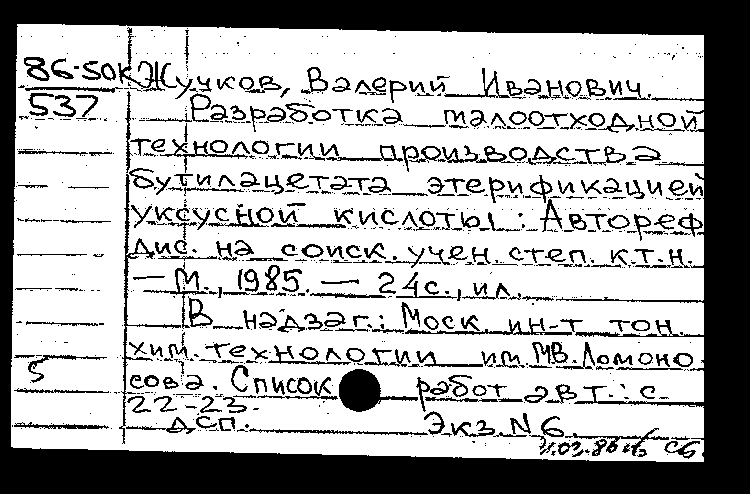 86-50к Жучков, Валерий Иванович.
537 Разработка малоотходной
технологии производства
бутилацетата этерификацией
уксусной кислоты: Автореф
дис. на соиск. учен. степ. к.т.н.
— М., 1985. — 24с., ил.
В надзаг.: Моск. ин-т тон.
хим. технологии им. МВ. Ломоно-
5 сова. Список работ авт.: с.
22-23.
ДСП. Экз. N 6.
11.03.86 сб.